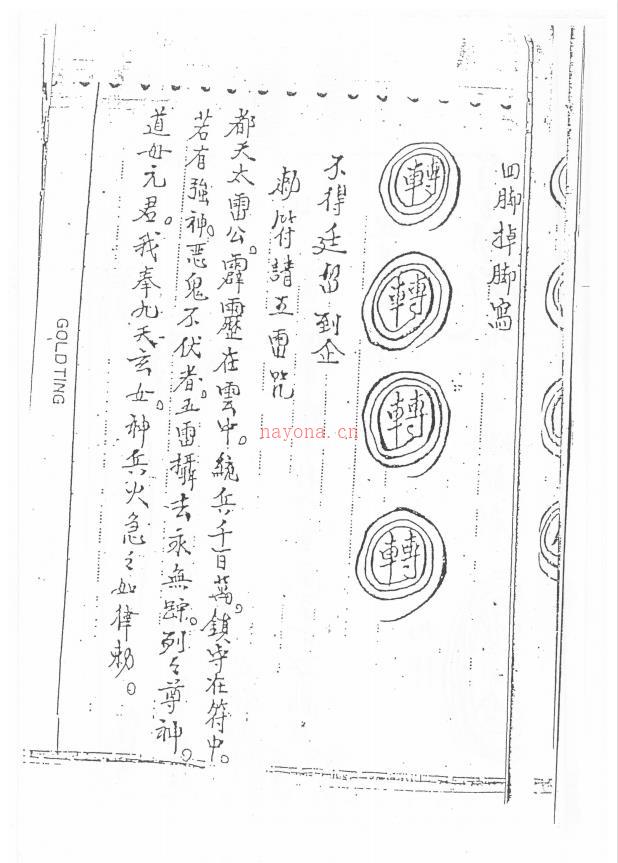 四脚掉脚寫
轉
轉
轉
轉
不得廷留到企
勅符請五雷咒
都天太雷公。霹靂在雲中。統兵千百萬。鎮守在符中。
若有強神。惡鬼不伏者。五雷攝去永無踪。列々尊神。
道母元君。我奉九天玄女。神兵火急々如律勅。
GOLDTING
nayona.cn